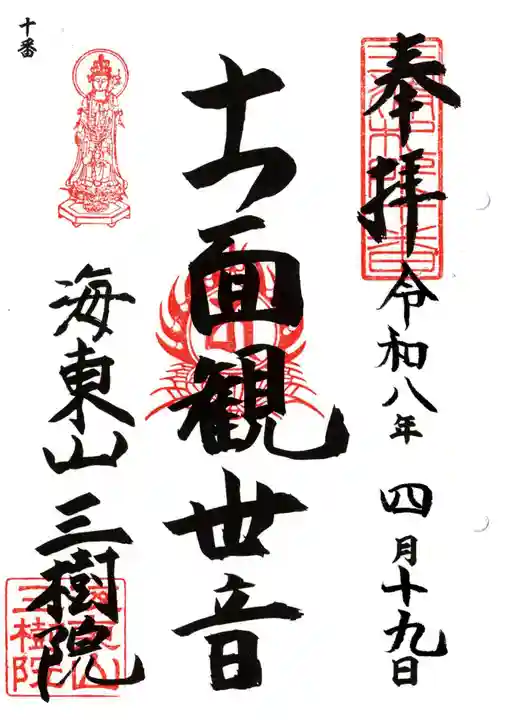 奉拝
令和八年 四月十九日
十一面観世音
海東山 三樹院
十番
海東山
三樹院